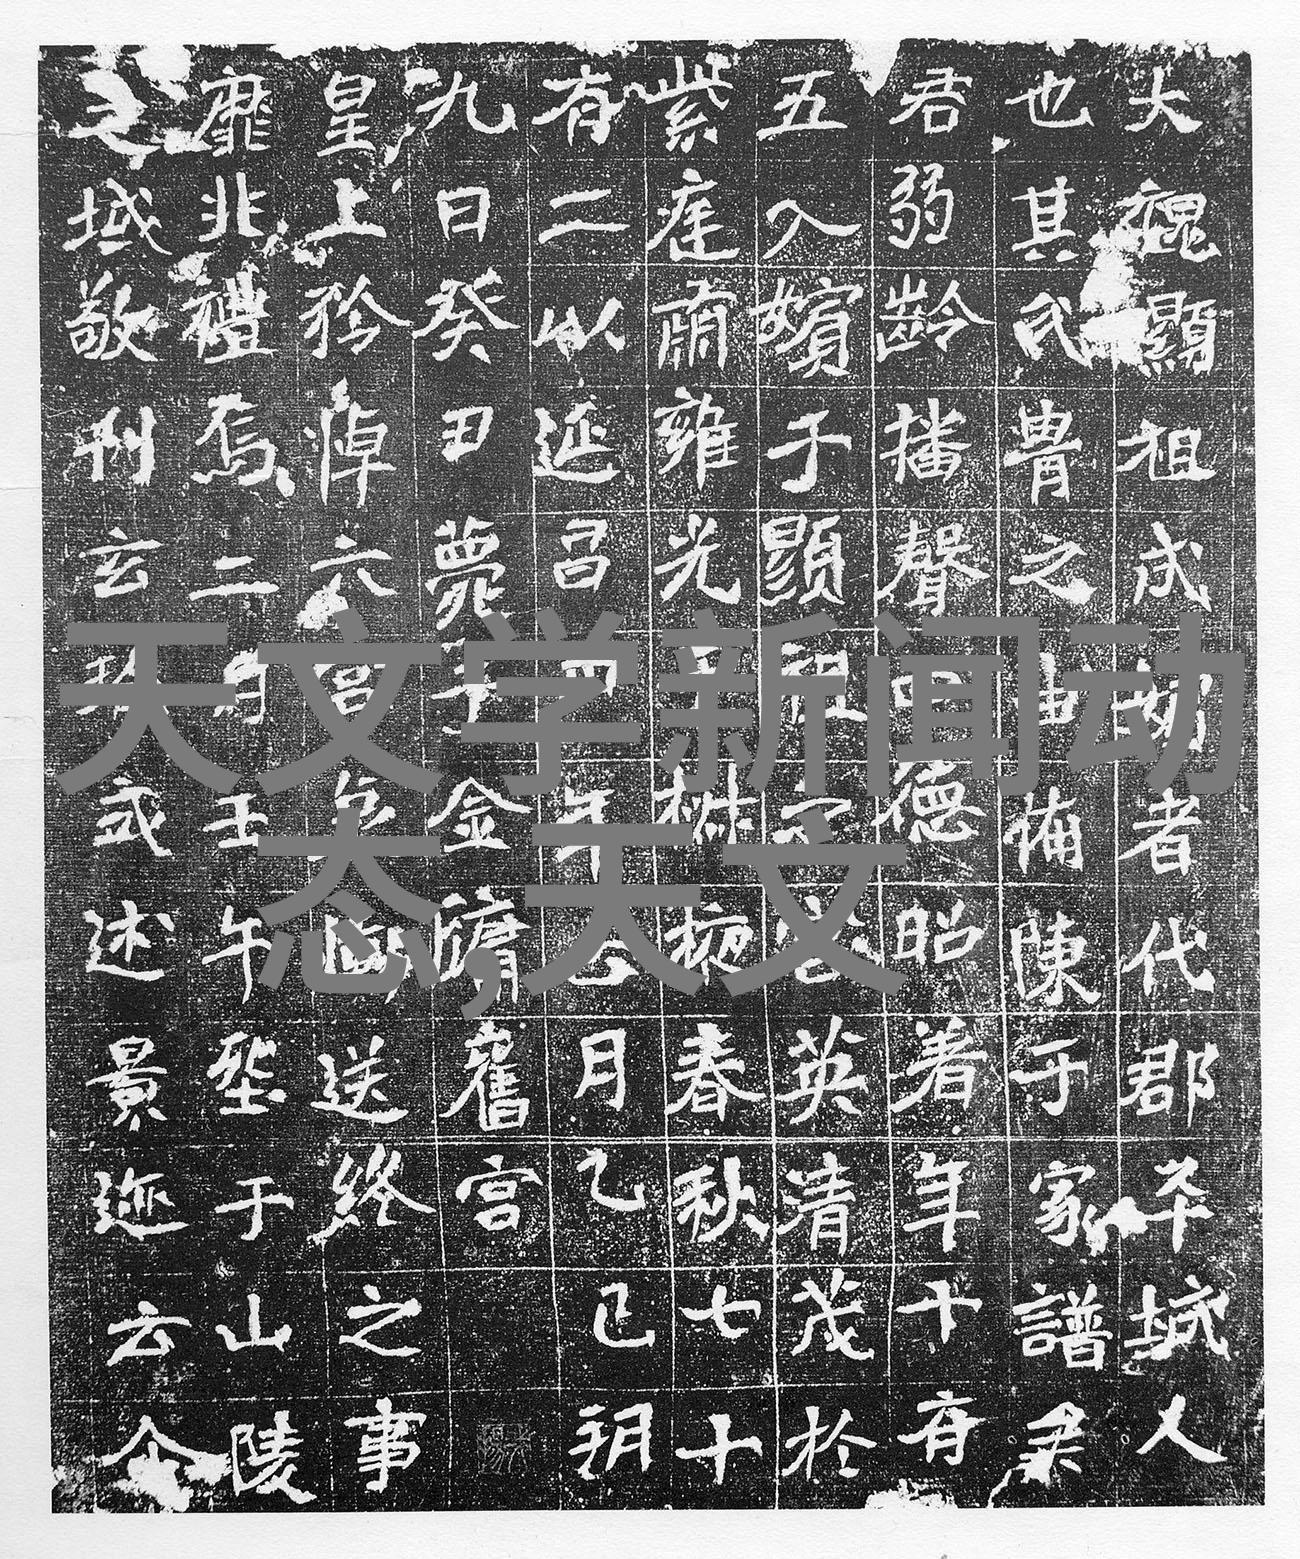 大魏顯祖成嬪者代郡平城人
也其氏冑之由備陳于家譜
君弱齡播聲四德昭著年十有
五入嬪于顯祖英清茂於
紫庭肅雍光于椒掖春秋七十
有二以延昌四年正月乙巳朔
九日癸丑薨于金墉舊宮
皇上矜悼六宮哀慟送終之事
靡非禮焉二月壬午塟于山陵
之域敬刊玄式述景迹云尒
天文学新闻动
态,天文